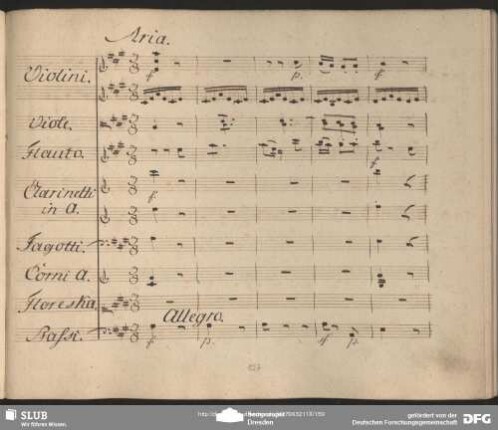 Aria.
Violini.
f
p.
f
Viole.
Flauto.
f
Clarinetti
in A.
f
Fagotti.
Corni A.
Floreska.
Allegro.
Bassi.
f
p.
sf
p.
SLUB
Wir führen Wissen.
Dresden
gefördert von der
Deutschen Forschungsgemeinschaft
DFG